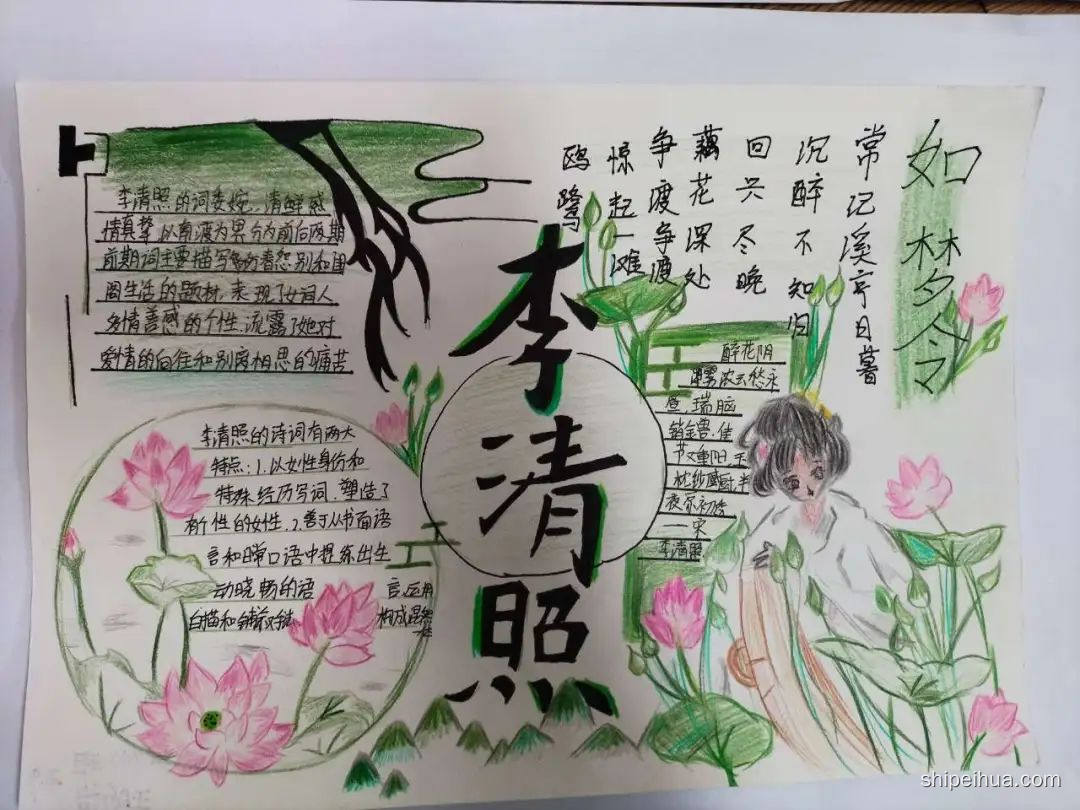 如梦令
常记溪亭日暮
沉醉不知归
回兴尽晚
藕花深处
争渡争渡
惊起一滩
鸥鹭
李清照
李清照的词委婉、清鲜感
情真挚.以南渡为界分为前后两期
前期词主要描写伤春怨别和闺
阁生活的题材,表现了女词人
多情善感的个性,流露了她对
爱情的向往和别离相思的痛苦
李清照的诗词有两大
特点:1.以女性身份和
特殊经历写词,塑造了
有个性的女性.2.善于从书面语
言和日常口语中提炼出生
动晓畅的语 言,运用
白描和铺叙 构成
醉花阴
薄雾浓云愁永
昼,瑞脑
销金兽.佳
节又重阳,玉
枕纱厨,半
夜凉初透
—宋
李清照
shipeihua.com